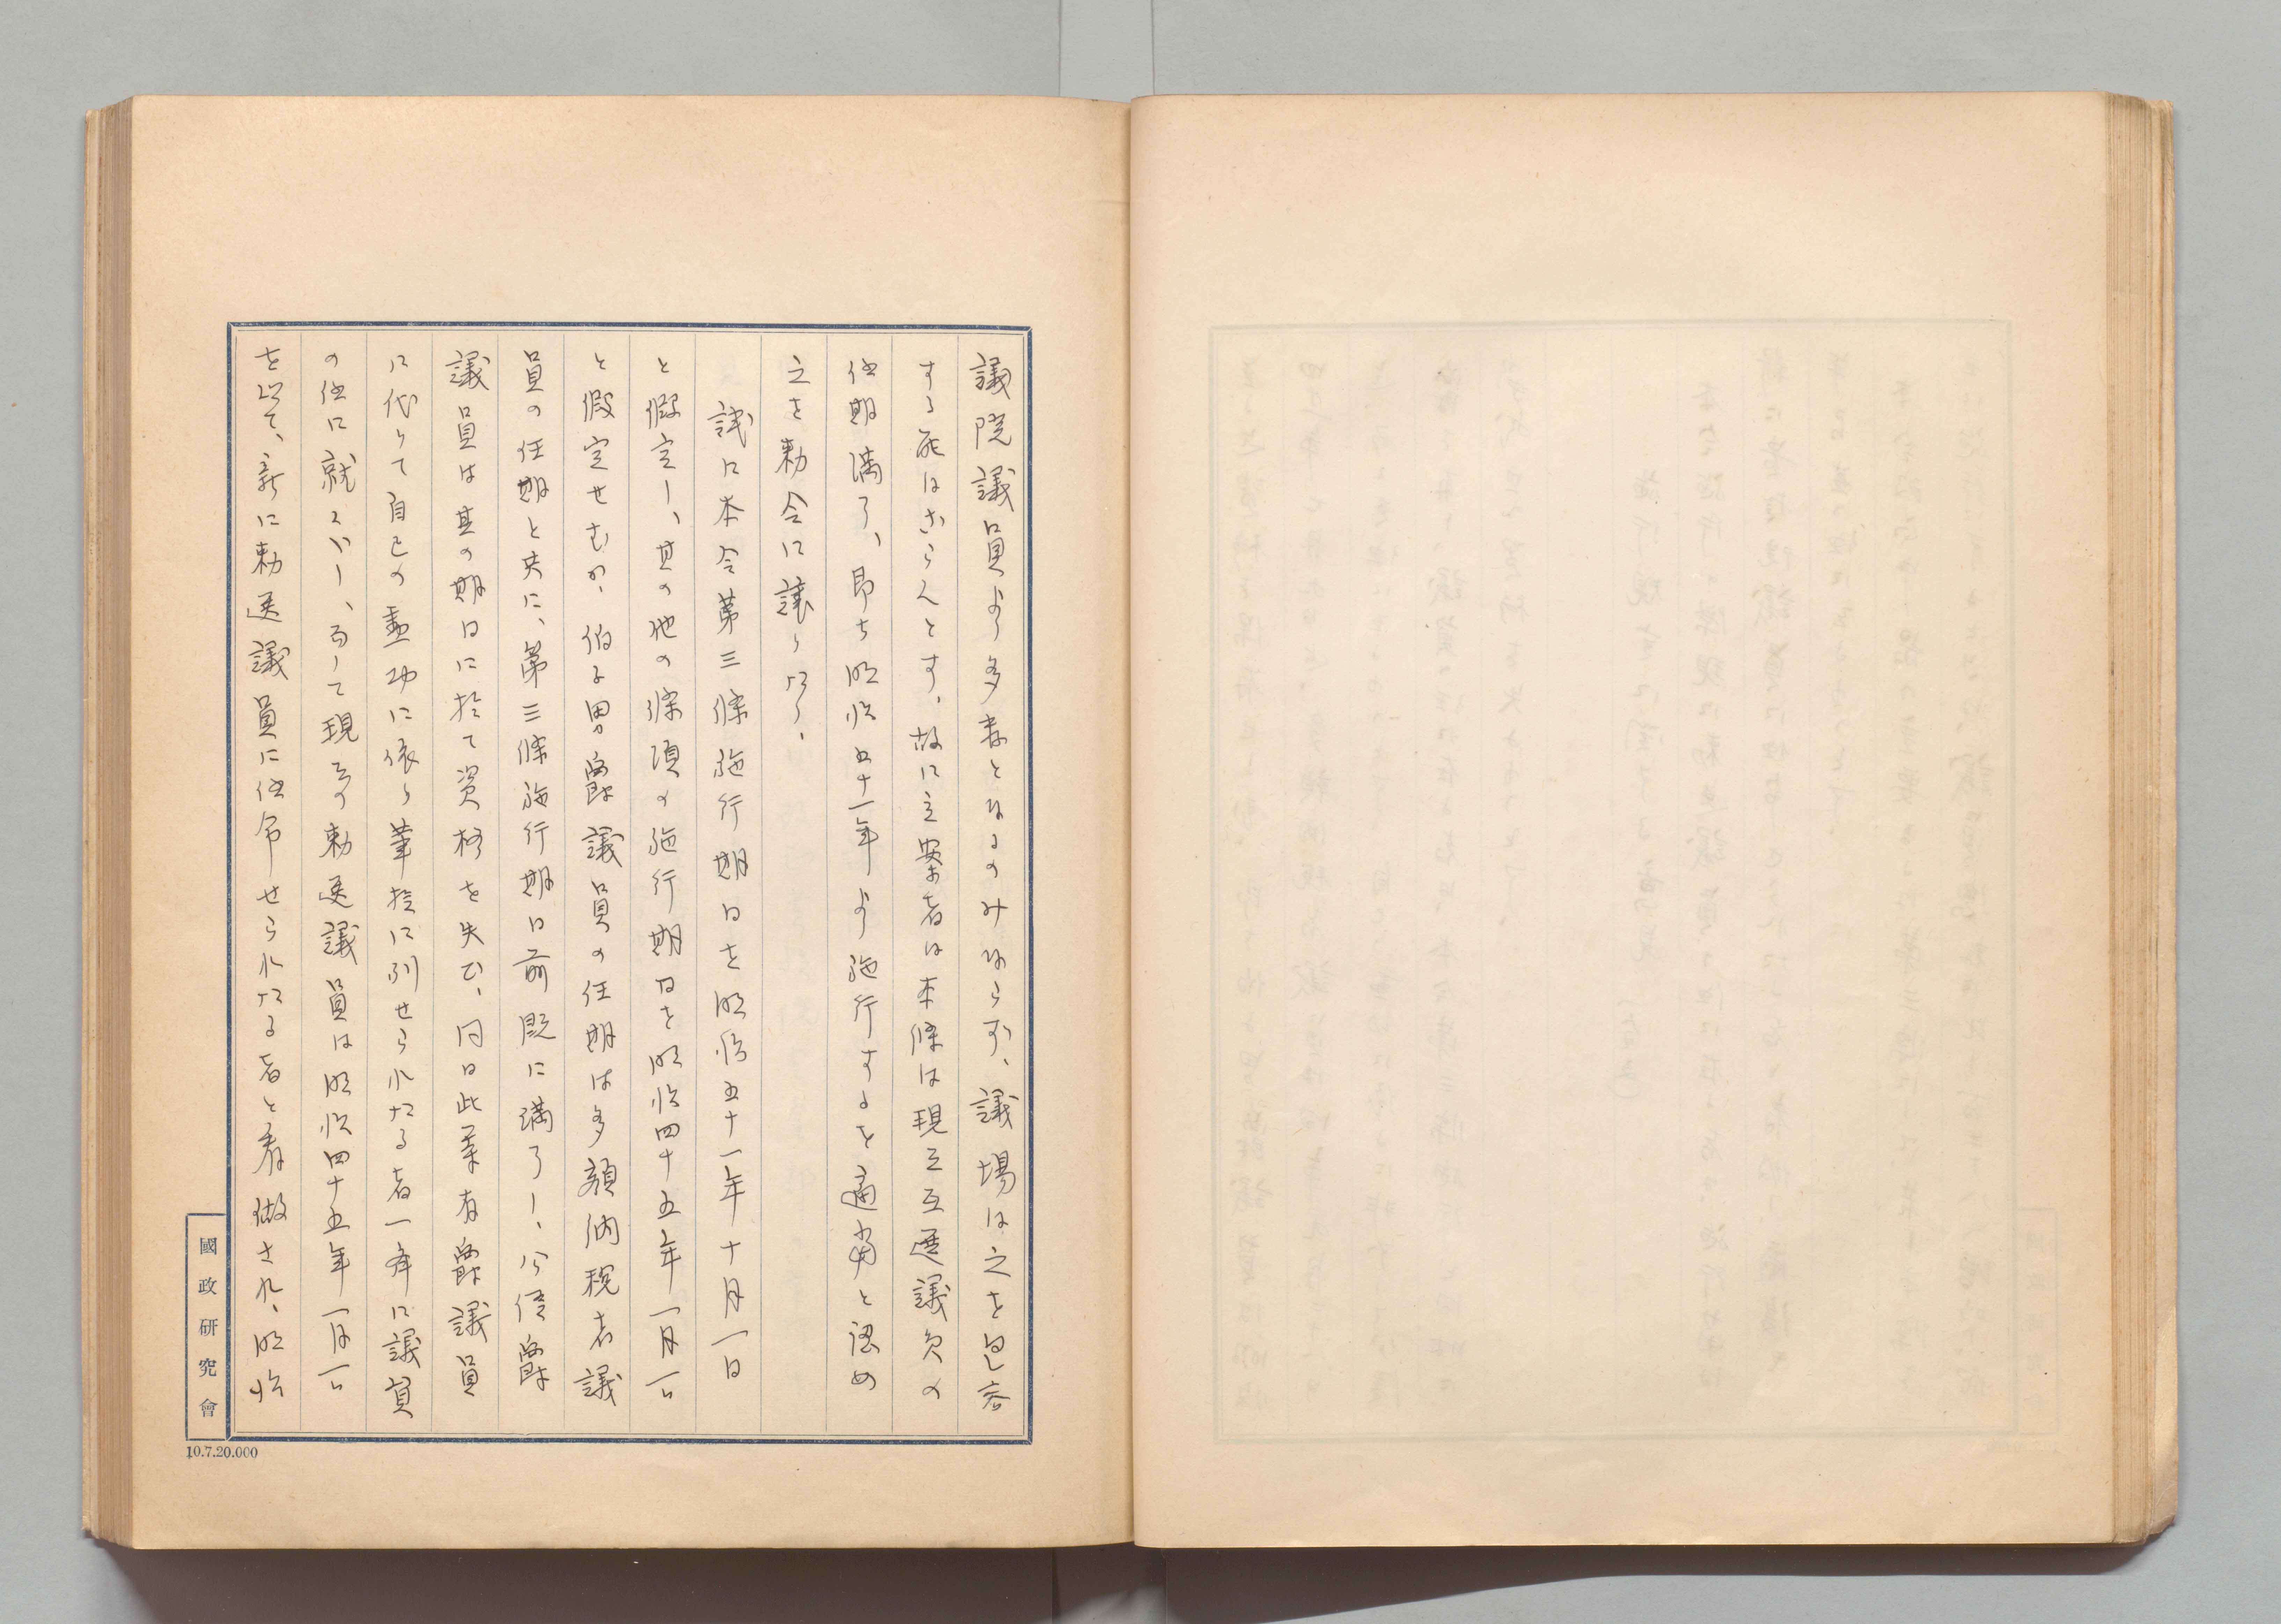 議院議員より多春となるのみならず、議場は之を包容
する能はざらんとす、故に立案者は本條は現在互選議員の
任期満了、即ち明治五十一年より施行するを適當と認め
之を勅令に譲りたり、
試に本令第三條施行期日を明治五十一年十月一日
と假定し、其の他の條項の施行期日を明治四十五年一月一日
と假定せむか、伯子男爵議員の任期は多額納税者議
員の任期と共に、第三條施行期日前既に満了し、公侯爵
議員は其の期日に於て資格を失ひ、同日此等有爵議員
に代りて自己の勲功に依り華族に列せられたる者一斉に議員
の任に就くべし、而して現在の勅選議員は明治四十五年一月一日
を以て、新に勅選議員に任命せられたる者と看做され、明治
國政研究會
10.7.20.000